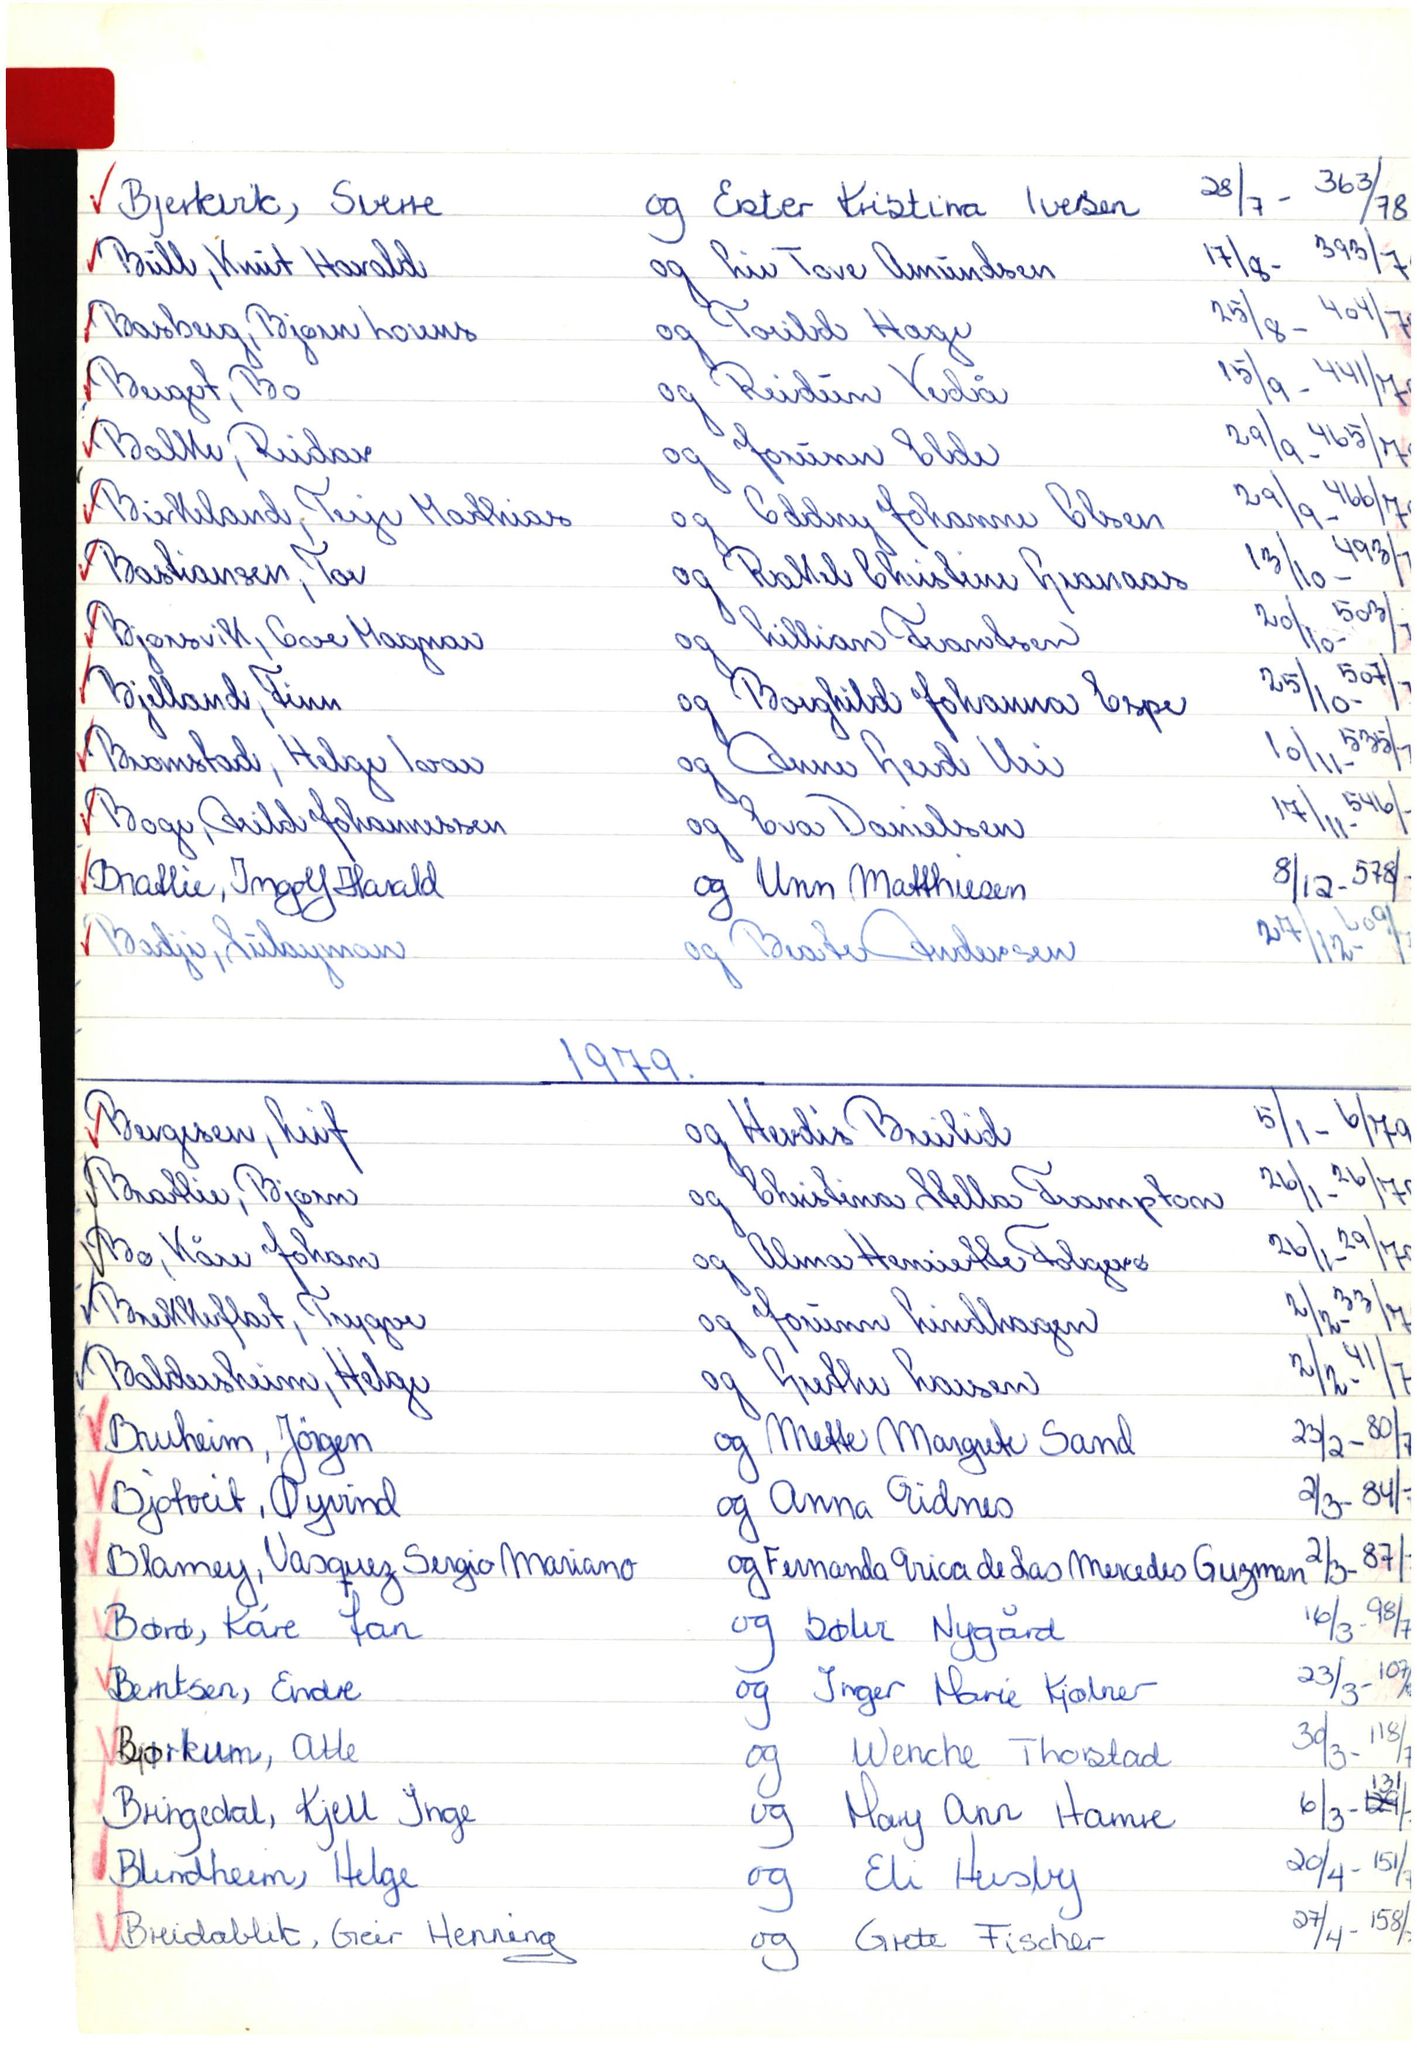 Bjerkvik, Sverre og Ester Kristina Iversen 28/7 - 363/78
Büll, Knüt Harald og Liv Tove Amündsen 17/8 - 393/7
Basberg, Bjørn Lorens og Torild Hage 25/8 - 404/7
Berget, Bo og Reidün Vedå 15/9 - 441/7
Bakke, Reidar og Jorünn Elde 29/9 - 465/7
Birkeland, Terje Mathias og Oddny Johanne Olsen 29/9 - 466/7
Bastiansen, Tor og Rakel Christine Granaas 13/10 - 493/7
Bjørsvik, Magnar og Lillian Frantsen 20/10 - 503/7
Bjelland, Finn og Borghild Johanna Espe 25/10 - 507/7
Bramstad, Helge Ivar og Anne Gerd Uri 10/11 - 535/7
Boge, Arild Johannessen og Eva Danielsen 17/11 - 546/
Brattie, Ingolf Harald og Unn Matthiesen 8/12 - 578/
Badji, Sülayman og Beate Andersen 27/12 - 609/
1979.
Bergesen, Leif og Herdis Breilid 5/1 - 6/79
Brattie, Bjørn og Christina Stella Frampton 26/1 - 26/79
Bø, Kåre Johan og Alma Henriette Folgerø 26/1 - 29/79
Brekkeflat, Trygve og Jorünn Lindhagen 2/2 - 33/7
Baldersheim, Helge og Grethe Larsen 2/2 - 41/7
Bruheim, Jörgen og Mette Margrete Sand 23/2 - 80/7
Bjotveit, Øyvind og Anna Eidnes 2/3 - 84/7
Blamey, Vasquez Sergio Mariano og Fernanda Erica de Las Mercedes Guzman 2/3 - 87/7
Børø, Kåre Jan og Sølvi Nygård 16/3 - 98/7
Berntsen, Endre og Inger Marie Kjølner 23/3 - 107/
Bjørkum, Atle og Wenche Thorstad 30/3 - 118/7
Bringedal, Kjell Inge og Mary Ann Hamre 6/3 - 131/
Blindheim, Helge og Eli Husby 20/4 - 151/7
Breidablik, Geir Henning og Grete Fischer 27/4 - 158/